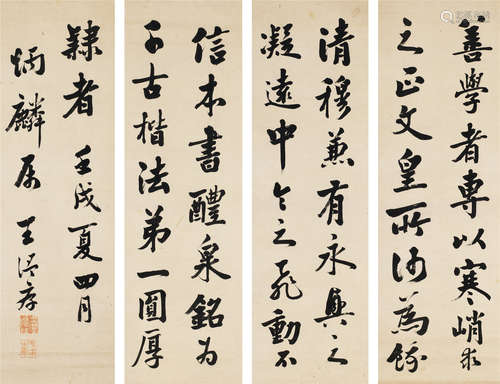 信本書醴泉銘為
千古楷法弟一圓厚
清穆兼有永興之
凝遠中令之飛動不
善學者專以寒峭求
之正文皇所訶為餓
隸者 壬戌夏四月
炳麟屬 王